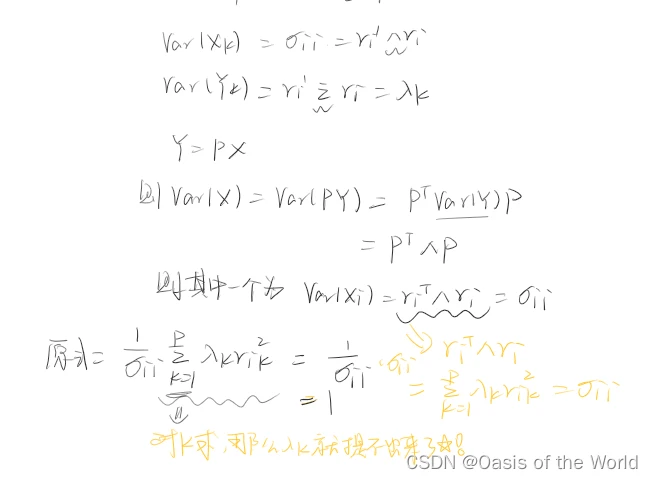 Var(Xk) = σii = ri' Λ ri
Var(Yk) = ri' Σ ri = λk
Y = PX
则 Var(X) = Var(PY) = P^T Var(Y) P
= P^T Λ P
则其中一个为 Var(Xi) = ri^T Λ ri = σii
原式 = 1/σii Σ_{k=1}^{P} λk rik^2 = 1/σii · σii
= 1
ri^T Λ ri
= Σ_{k=1}^{P} λk rik^2 = σii
对k求,那么λk就提不出来了☆!
CSDN @Oasis of the World